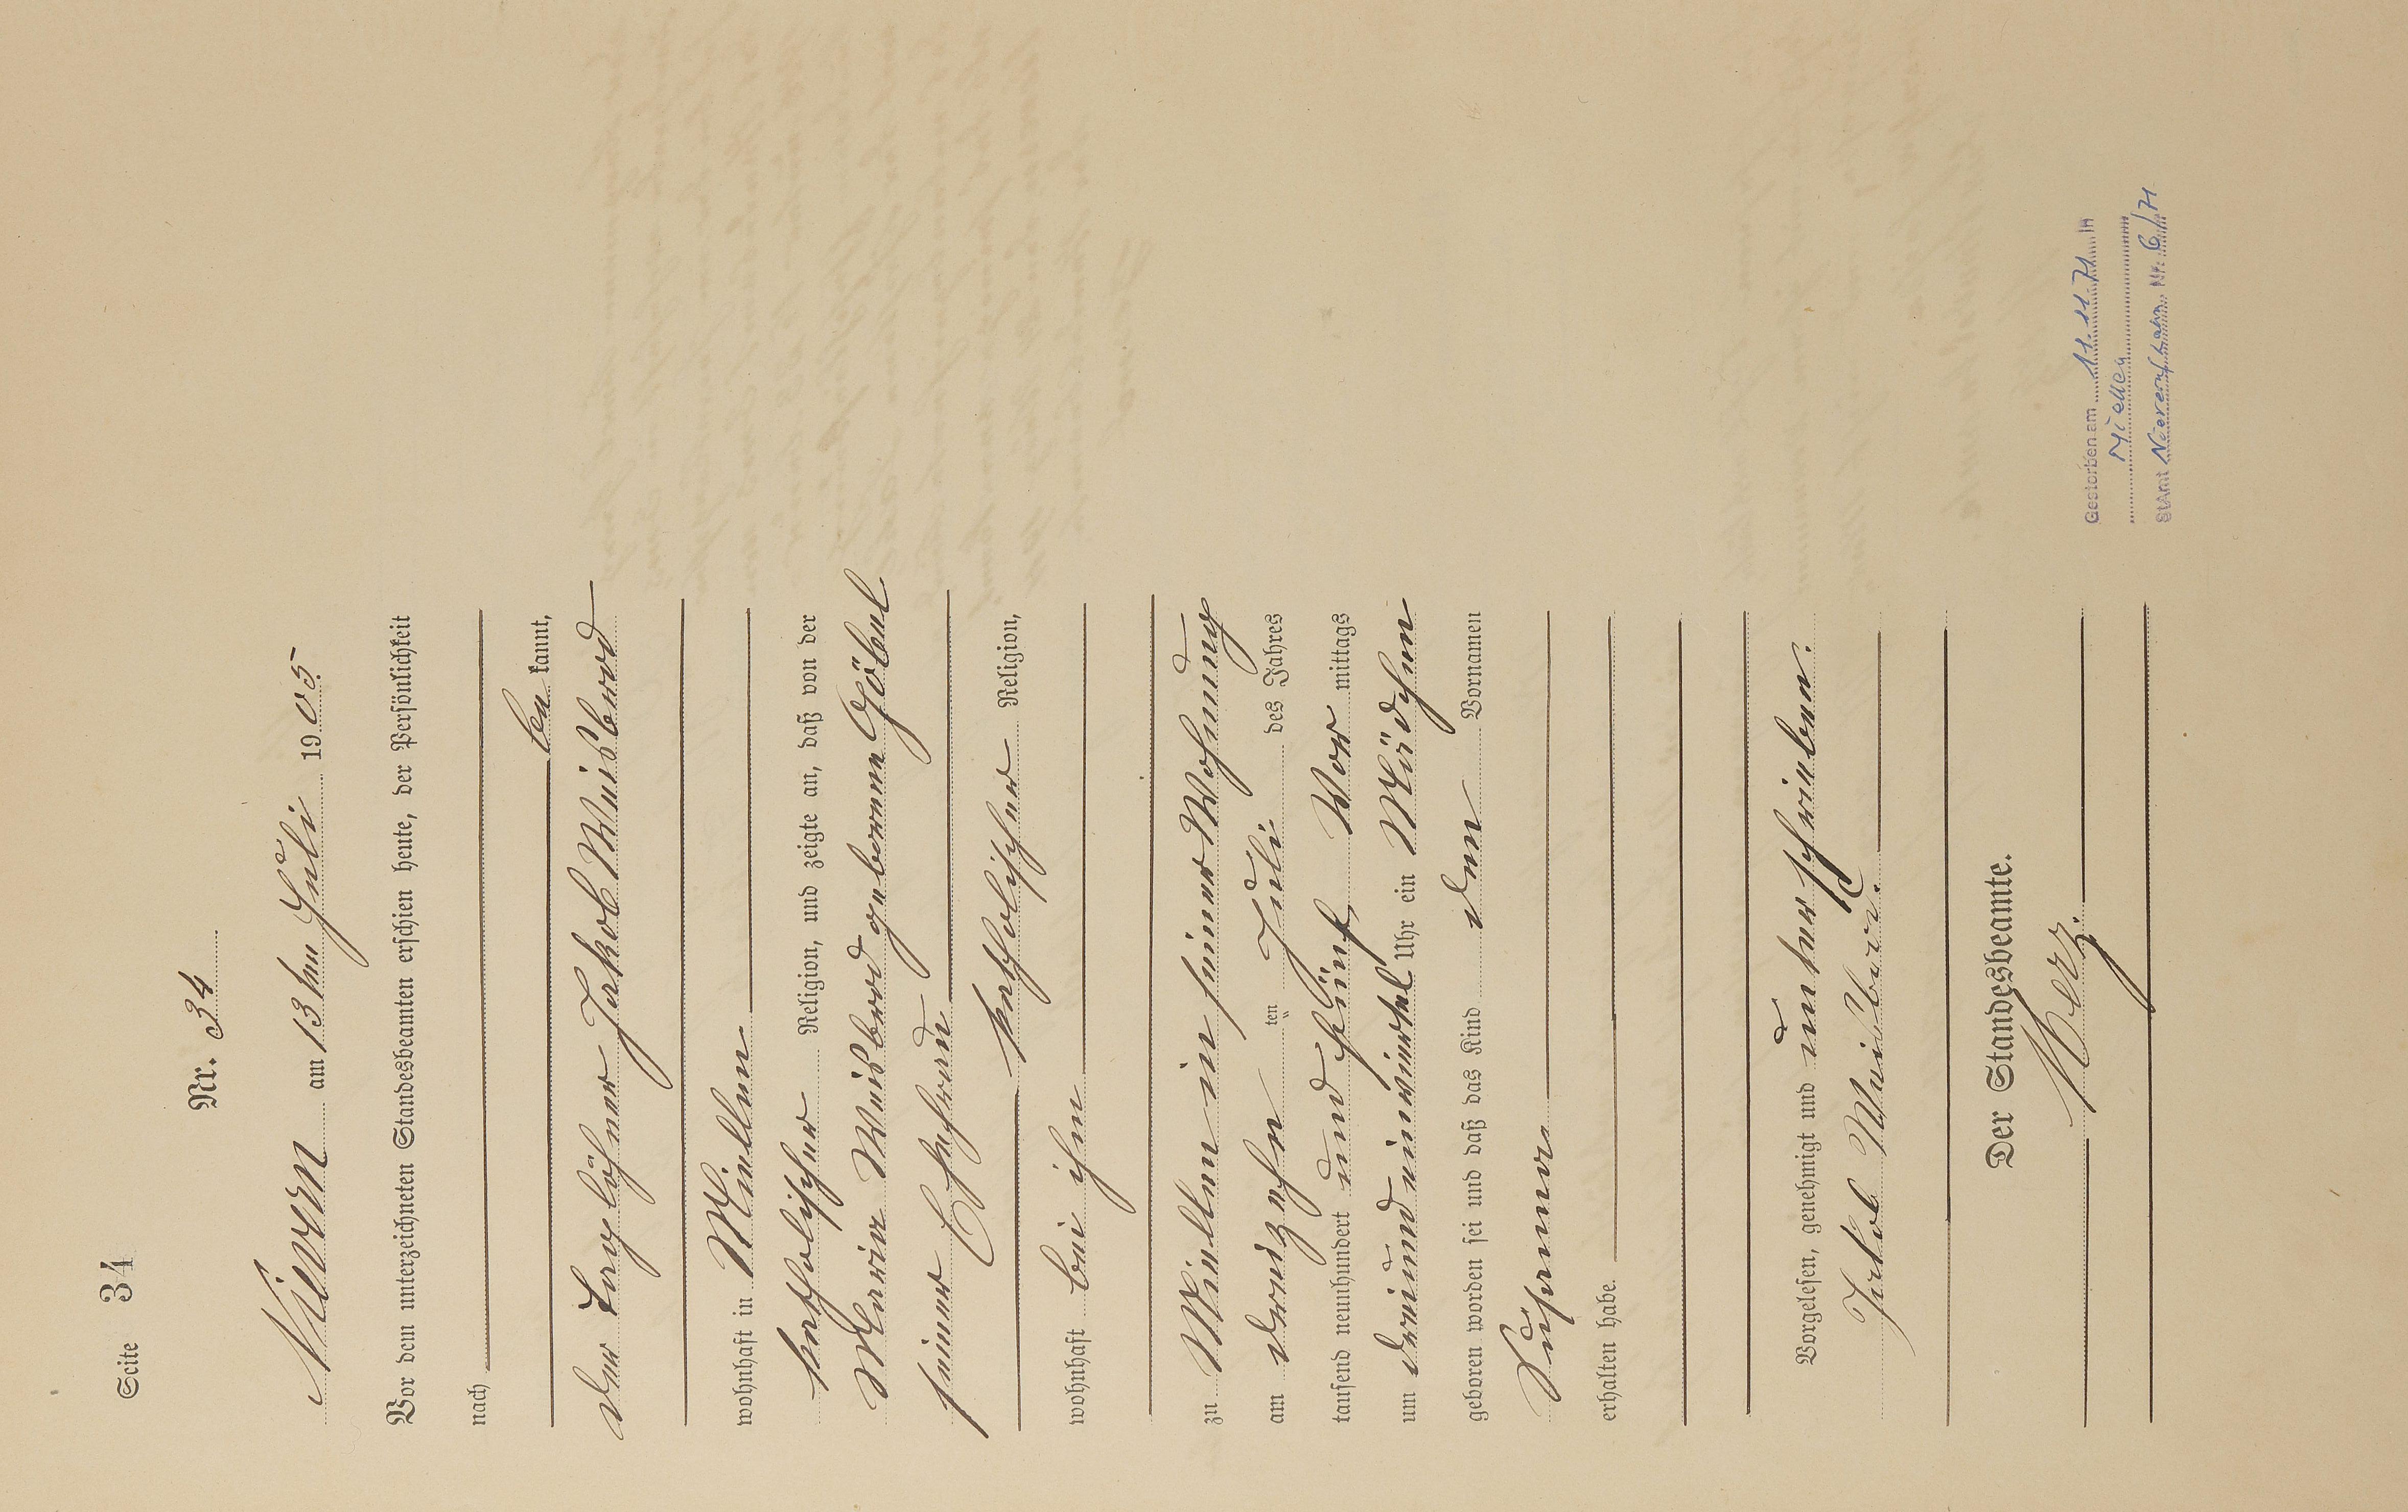 Seite 34
Nr. 34
Nievern am 13ten Juli 1905.
Vor dem unterzeichneten Standesbeamten erschien heute, der Persönlichkeit
nach
be kannt,
der Taglöhner Jakob Weisbrod
wohnhaft in Miellen
katholischer Religion, und zeigte an, daß von der
Maria Weisbrod geborenen Göbel
seiner Ehefrau
katholischer Religion,
wohnhaft bei ihm
zu Miellen in seiner Wohnung
am dreizehn ten Juli des Jahres
tausend neunhundert und fünf Vor mittags
um dreiundeinviertel Uhr ein Mädchen
geboren worden sei und daß das Kind den Vornamen
Susanna
erhalten habe.
Vorgelesen, genehmigt und unterschrieben.
Jakob Weisbrod.
Der Standesbeamte.
Gestorben am 11.11.71 in
Miellen
StAmt Nievern Nr. 6/71